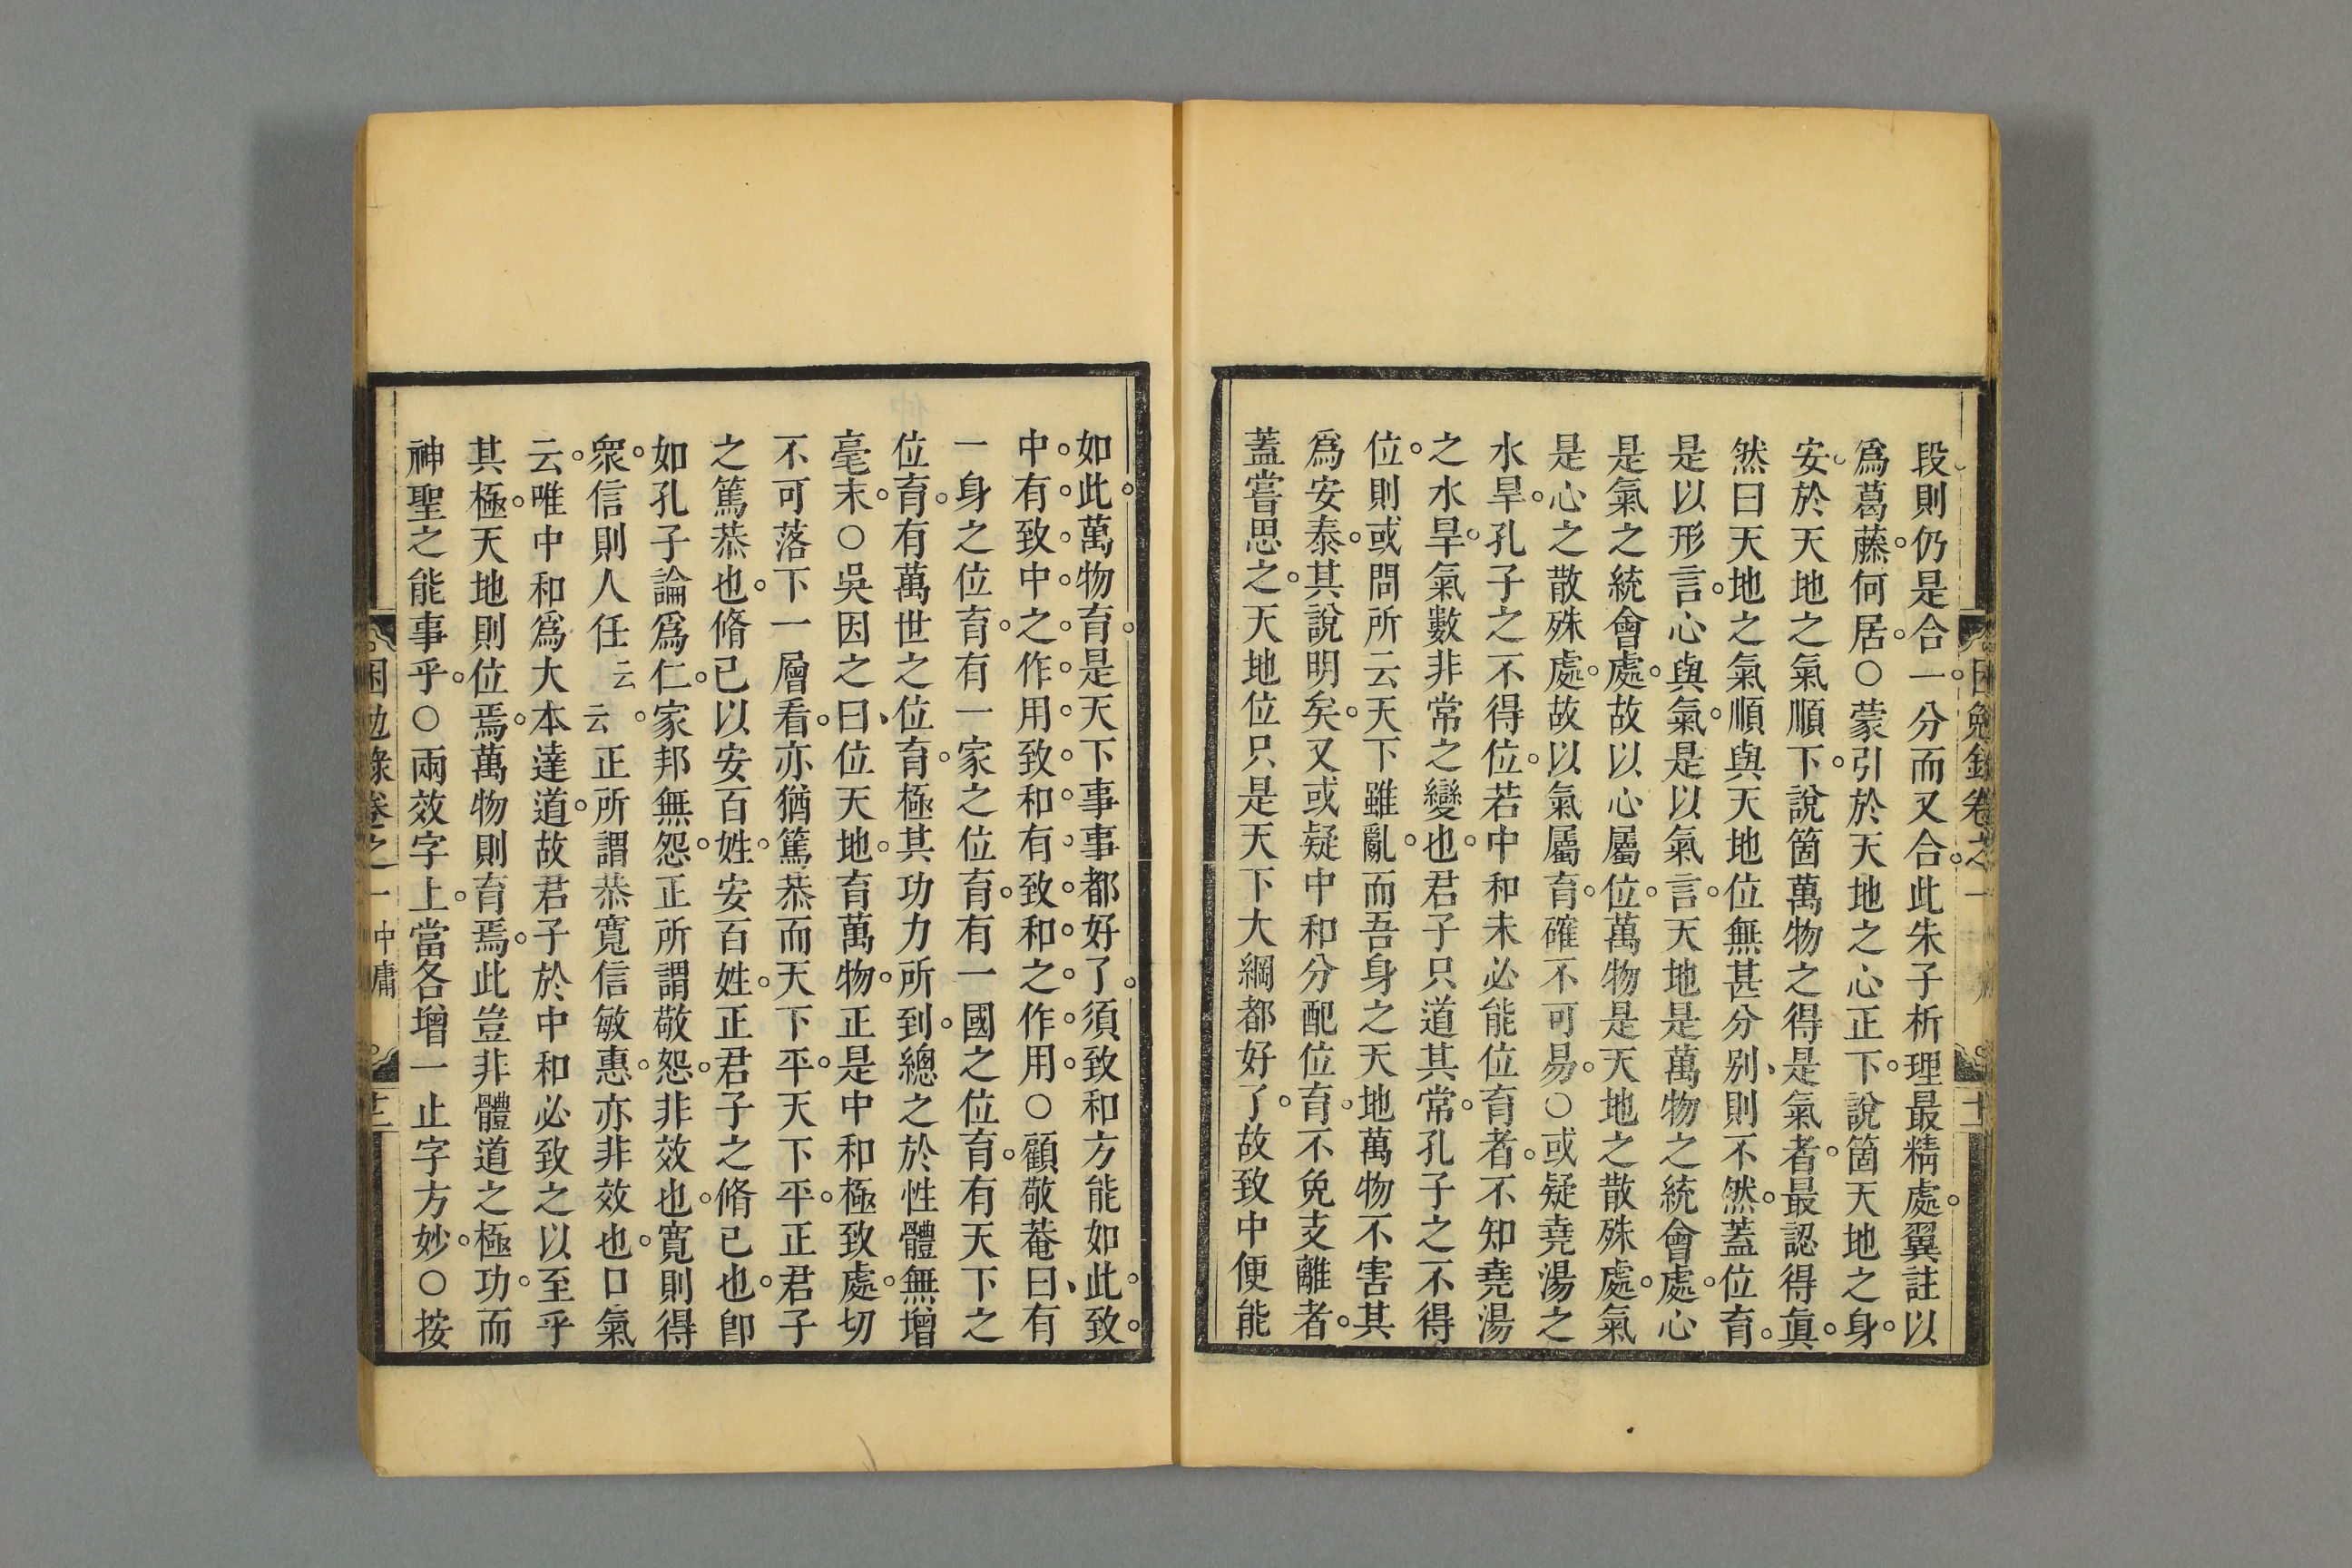 段則仍是合一分而又合此朱子析理最精處翼註以
爲葛藤何居○蒙引於天地之心正下說箇天地之身
安於天地之氣順下說箇萬物之得是氣者最認得眞
然曰天地之氣順與天地位無甚分別則不然蓋位育
是以形言心與氣是以氣言天地是萬物之統會處心
是氣之統會處故以心屬位萬物是天地之散殊處氣
是心之散殊處故以氣屬育確不可易○或疑堯湯之
水旱孔子之不得位若中和未必能位育者不知堯湯
之水旱氣數非常之變也君子只道其常孔子之不得
位則或問所云天下雖亂而吾身之天地萬物不害其
爲安泰其說明矣又或疑中和分配位育不免支離者
蓋嘗思之天地位只是天下大綱都好了故致中便能
如此萬物育是天下事事都好了須致和方能如此致
中有致中之作用致和有致和之作用○顧敬菴曰有
一身之位育有一家之位育有一國之位育有天下之
位育有萬世之位育極其功力所到總之於性體無增
毫末○吳因之曰位天地育萬物正是中和極致處切
不可落下一層看亦猶篤恭而天下平天下平正君子
之篤恭也脩己以安百姓安百姓正君子之脩己也卽
如孔子論爲仁家邦無怨正所謂敬恕非效也寬則得
衆信則人任云云正所謂恭寬信敏惠亦非效也口氣
云唯中和爲大本達道故君子於中和必致之以至乎
其極天地則位焉萬物則育焉此豈非體道之極功而
神聖之能事乎○兩效字上當各增一止字方妙○按
困勉錄卷之一 中庸